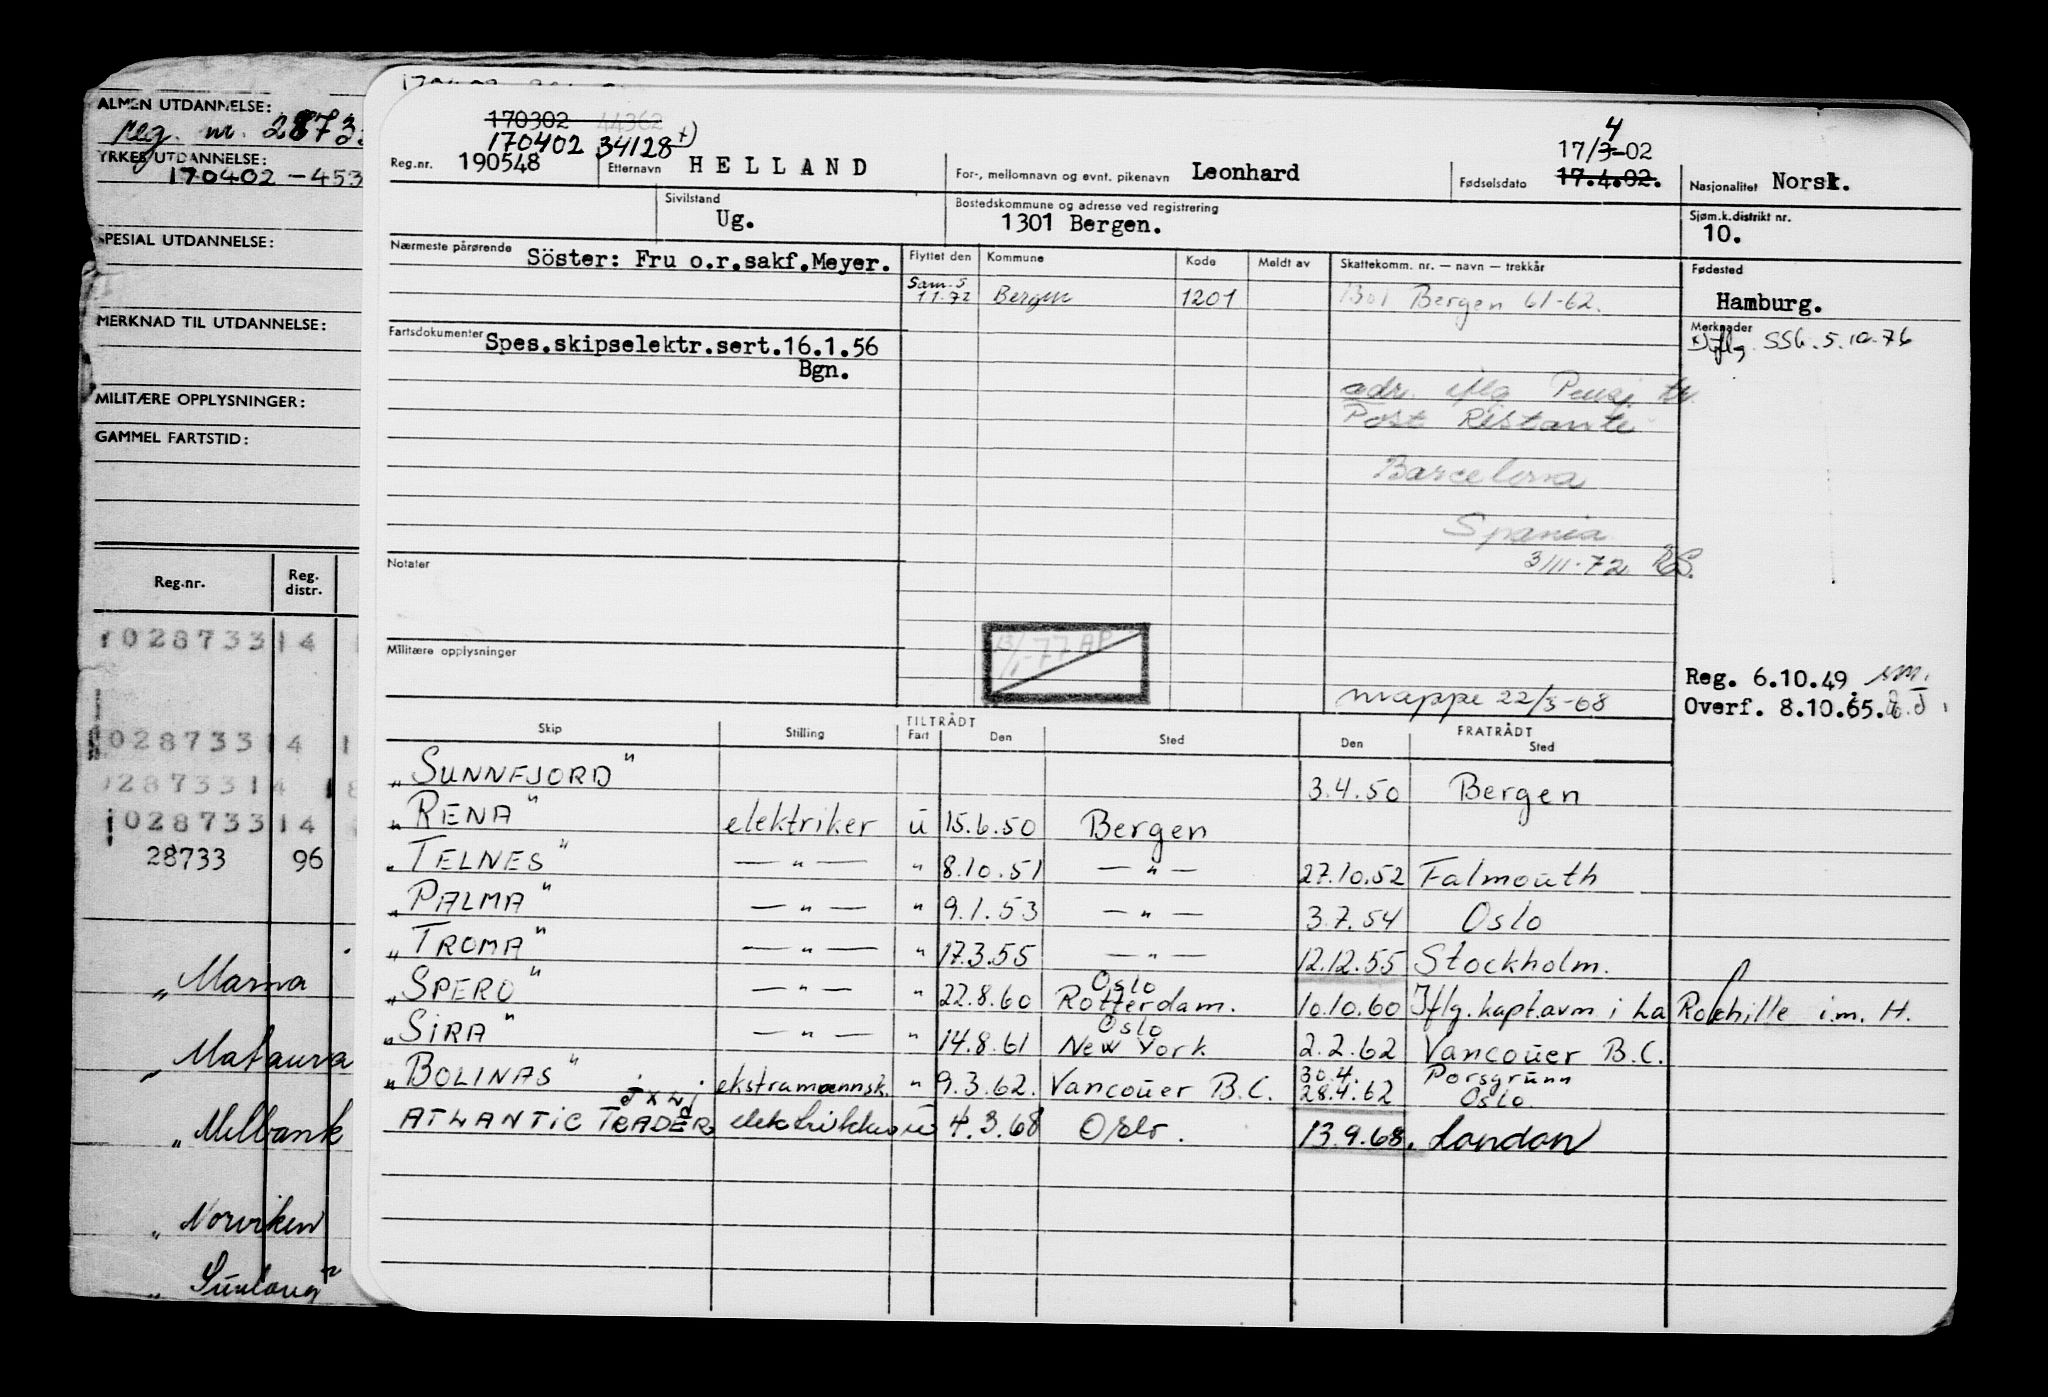 ALMEN UTDANNELSE:
reg. nr. 2873
YRKESUTDANNELSE:
170402 - 453
SPESIAL UTDANNELSE:
MERKNAD TIL UTDANNELSE:
MILITÆRE OPPLYSNINGER:
GAMMEL FARTSTID:
Reg.nr. Reg. distr.
102873314
02873314
02873314
102873314
28733 96
„Marna
„Mataura
„Milbank
„Norviken
170302 44362
170402 34128 x)
Reg.nr. 190548 Etternavn HELLAND For-, mellomnavn og evnt. pikenavn Leonhard Fødselsdato 17/3-02 4 17.4.02. Nasjonalitet Norsk.
Sivilstand Ug. Bostedskommune og adresse ved registrering 1301 Bergen. Sjøm.k.distrikt nr. 10.
Nærmeste pårørende Söster: Fru o.r.sakf.Meyer. Flyttet den Kommune Kode Meldt av Skattekomm. nr. — navn — trekkår Fødested Hamburg.
Sam.s. 1.1.72 Bergen 1201 1301 Bergen 61-62.
Fartsdokumenter Spes.skipselektr.sert.16.1.56 Bgn.
Merknader x) iflg. SSB. 5.10.76
adr. iflg Pensj tr.
Post Restante
Barcelona
Spania
3/11-72
Notater
13/1-77 AP
Militære opplysninger
mappe 22/3-68
Reg. 6.10.49
Overf. 8.10.65.
Skip Stilling TILTRÅDT Fart Den Sted FRATRÅDT Den Sted
„SUNNFJORD" 3.4.50 Bergen
„RENA" elektriker u 15.6.50 Bergen
„TELNES" — " — " 8.10.51 — " — 27.10.52 Falmouth
„PALMA" — " — " 9.1.53 — " — 3.7.54 Oslo
„TROMA" — " — " 17.3.55 — " — 12.12.55 Stockholm.
„SPERO" — " — " 22.8.60 Oslo Rotterdam. 10.10.60 Iflg. kapt.avm i La Rochille i.m. H.
„SIRA" — " — " 14.8.61 Oslo New York 2.2.62 Vancouver B.C.
„BOLINAS" ekstramannsk. " 9.3.62. Vancouver B.C. 30.4. Porsgrunn 28.4.62 Oslo
JXWJ
ATLANTIC TRADER elektrikker u 4.3.68 Oslo. 13.9.68. London